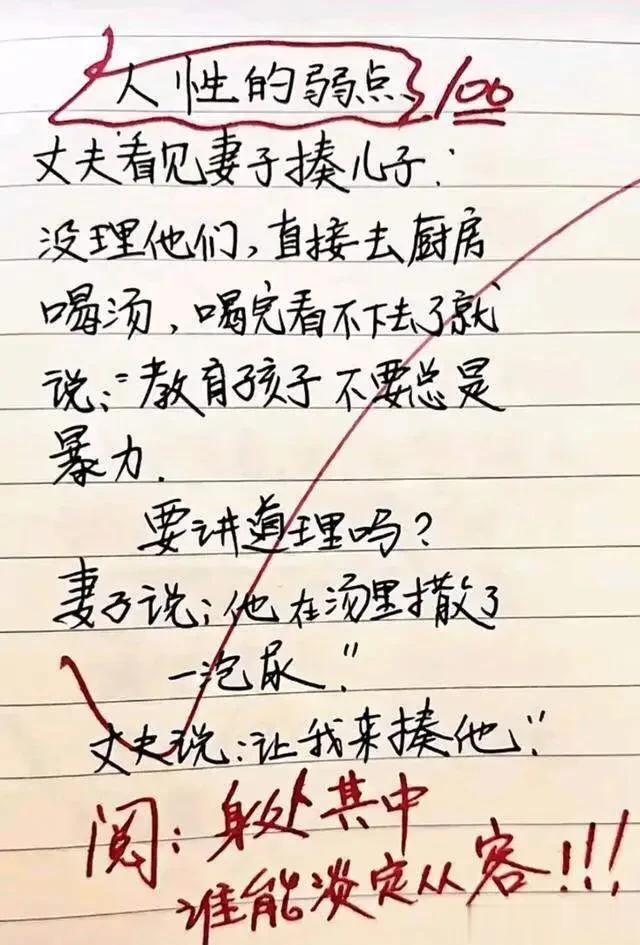 人性的弱点 100
丈夫看见妻子揍儿子:
没理他们,直接去厨房
喝汤,喝完看不下去了就
说:“教育孩子不要总是
暴力.
要讲道理吗?
妻子说:他在汤里撒了
一泡尿.”
丈夫说:让我来揍他.”
阅:身处其中
谁能淡定从容!!!